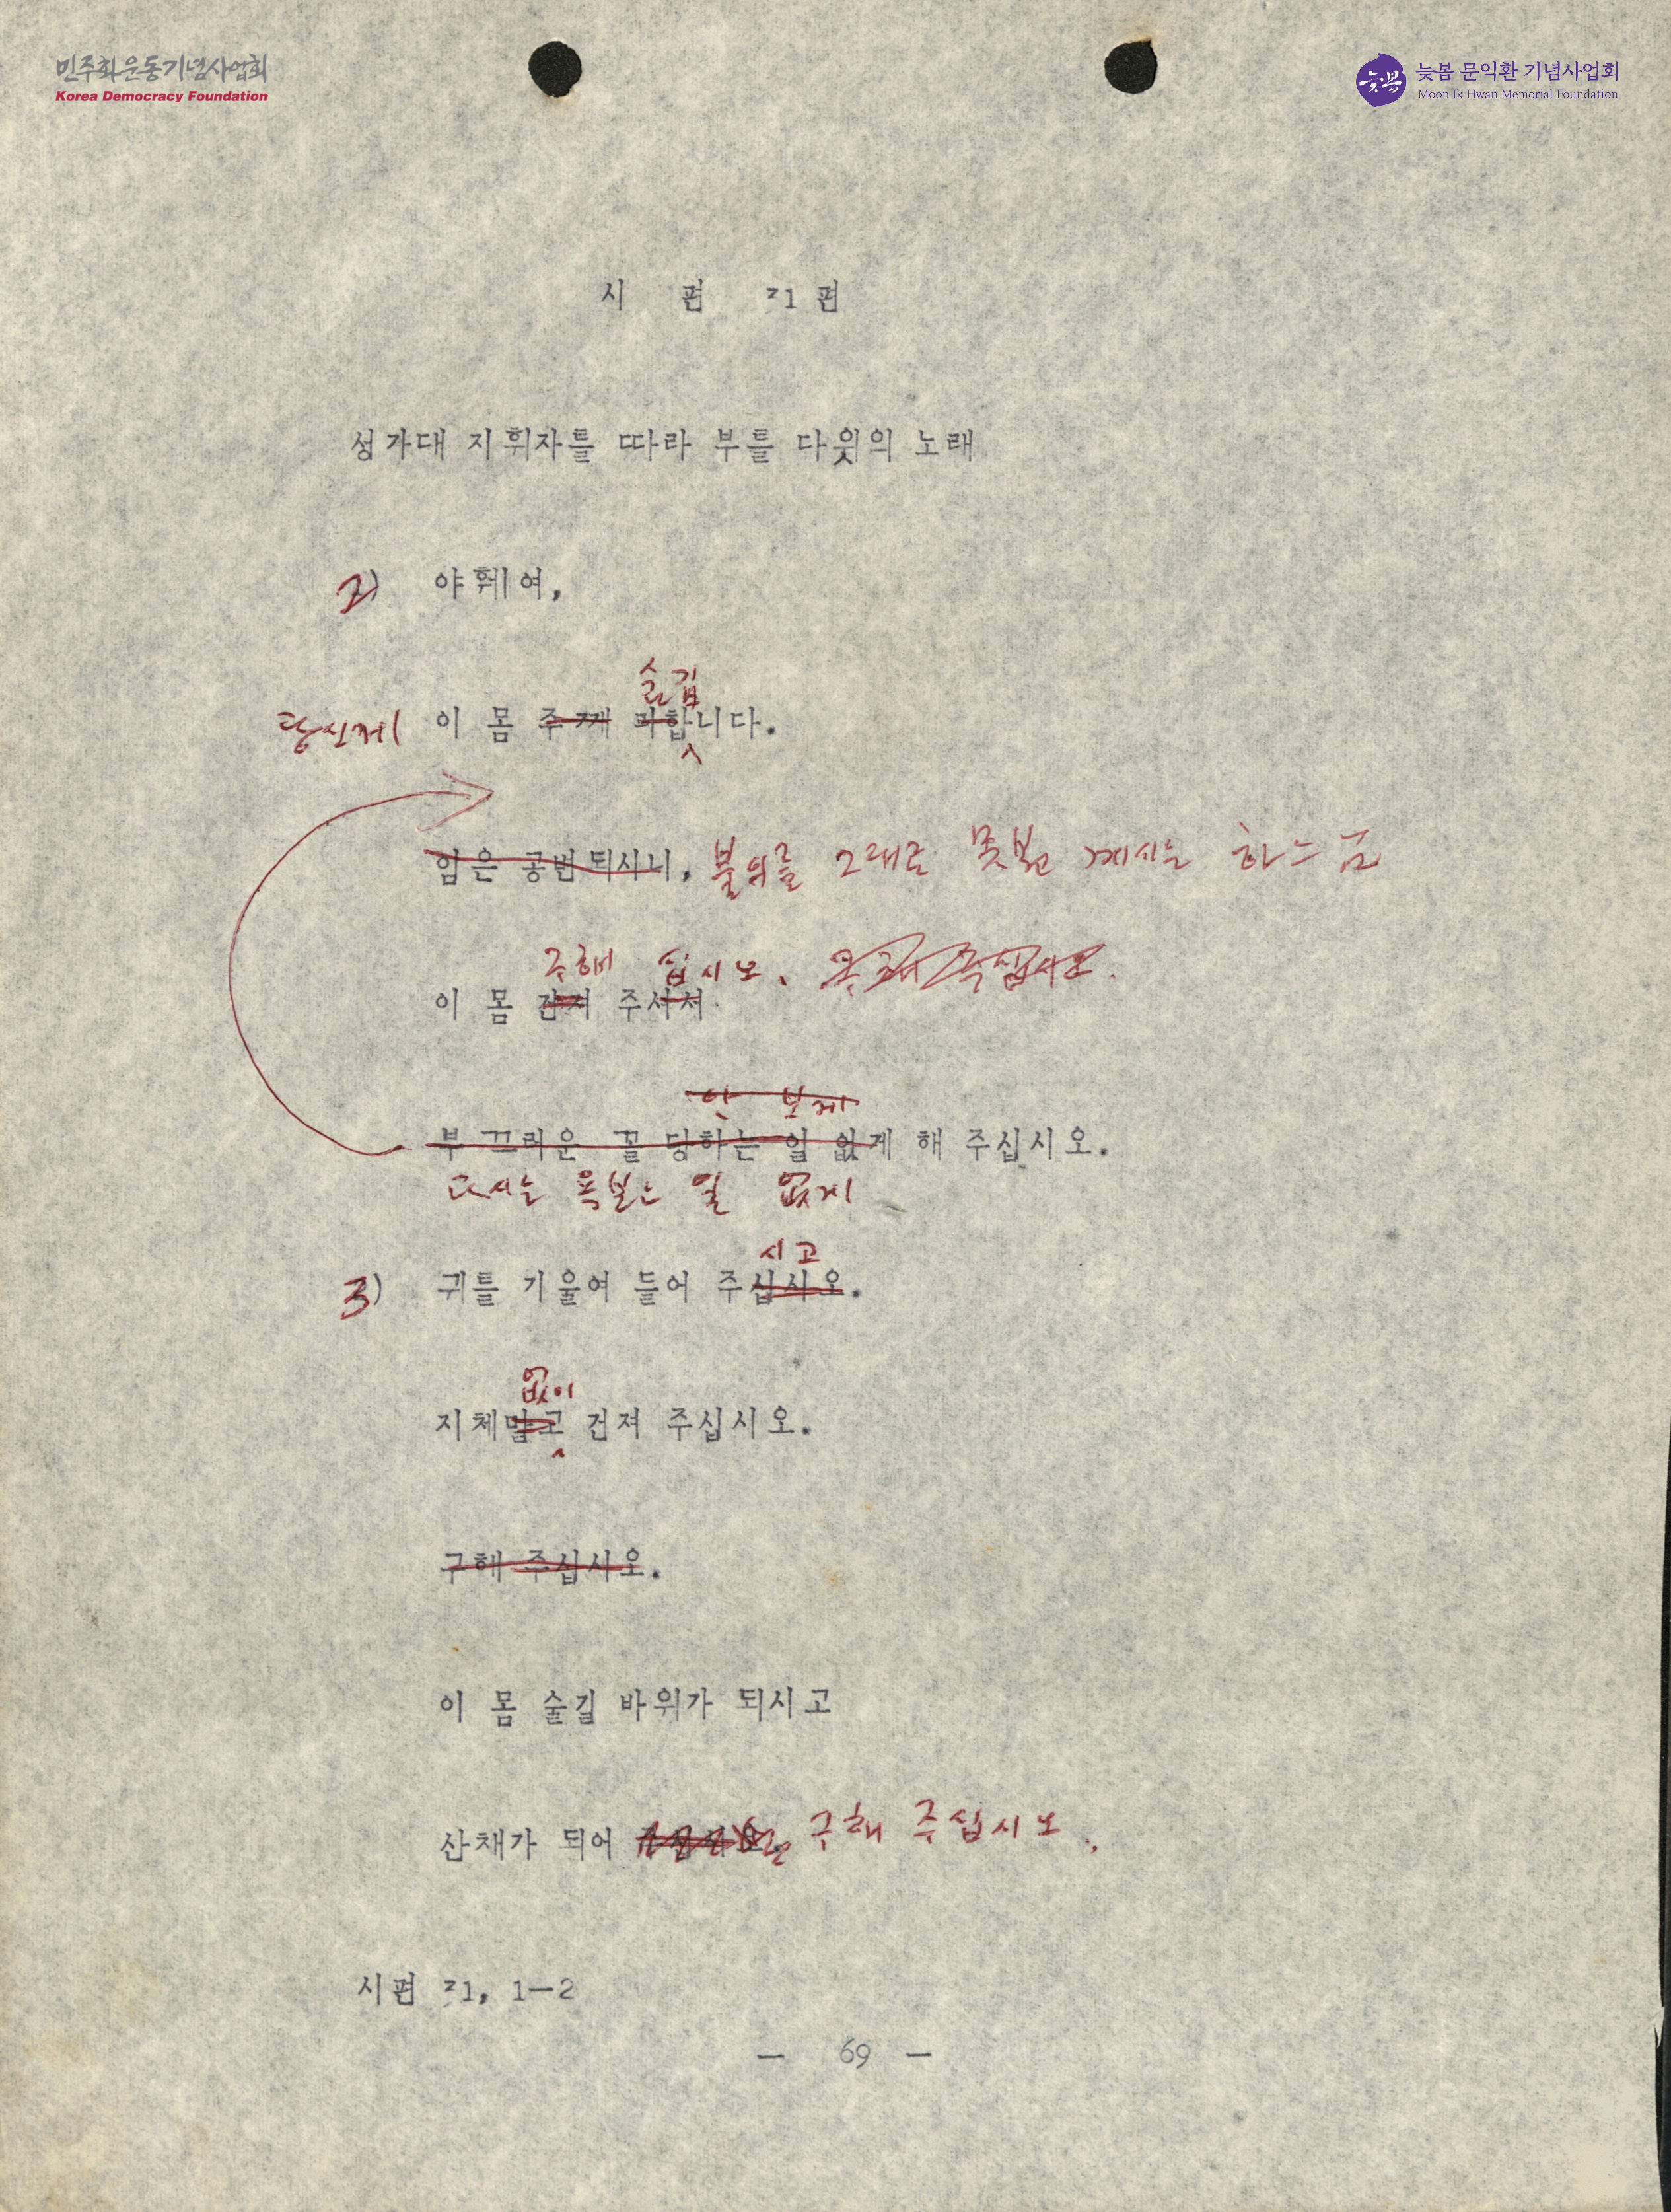 민주화운동기념사업회
Korea Democracy Foundation
늦봄
늦봄 문익환 기념사업회
Moon Ik Hwan Memorial Foundation
시 편 31 편
성가대 지휘자를 따라 부를 다윗의 노래
2) 야훼여,
숨깁
당신께 이 몸 주께 피합니다.
임은 공번되시니, 불의를 그대로 못본 계시는 하느님
구해 십시오.
이 몸 건져 주서셔
안 보게
부끄러운 꼴 당하는 일 없게 해 주십시오.
다시는 욕보는 일 없게
시고
3) 귀를 기울여 들어 주십시오.
없이
지체말고 건져 주십시오.
구해 주십시오.
이 몸 숨길 바위가 되시고
산채가 되어 구해 주십시오.
시편 31, 1-2
- 69 -